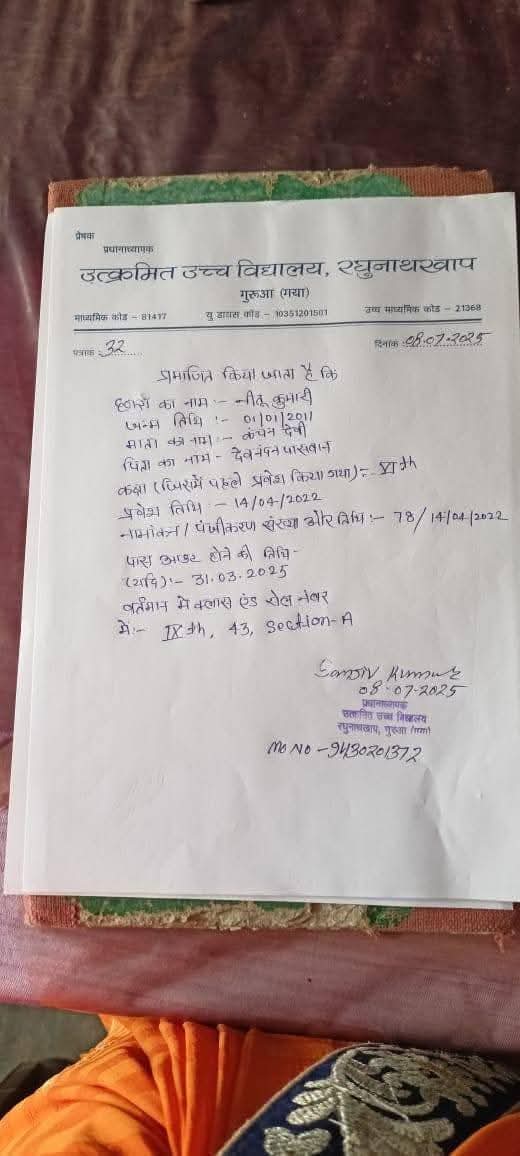 प्रेषक
प्रधानाध्यापक
उत्क्रमित उच्च विद्यालय, रघुनाथखाप
गुरुआ (गया)
माध्यमिक कोड – 81417 यु डायस कोड – 10351201501 उच्च माध्यमिक कोड – 21368
पत्रांक : 32 दिनांक : 08.07.2025
प्रमाणित किया जाता है कि
छात्रा का नाम :- नीतू कुमारी
जन्म तिथि :- 01/01/2011
माता का नाम :- कंचन देवी
पिता का नाम - देवनंदन पासवान
कक्षा (जिसमें पहले प्रवेश किया गया) :- VIth
प्रवेश तिथि - 14/04/2022
नामांकन / पंजीकरण संख्या और तिथि :- 78/14/04/2022
पास आउट होने की तिथि -
(यदि) :- 31.03.2025
वर्तमान में क्लास एंड रोल नंबर
में :- IXth, 43, Section-A
Sanjiv Kumar
08-07-2025
प्रधानाध्यापक
उत्क्रमित उच्च विद्यालय
रघुनाथखाप, गुरुआ (गया)
Mo No - 9430201372